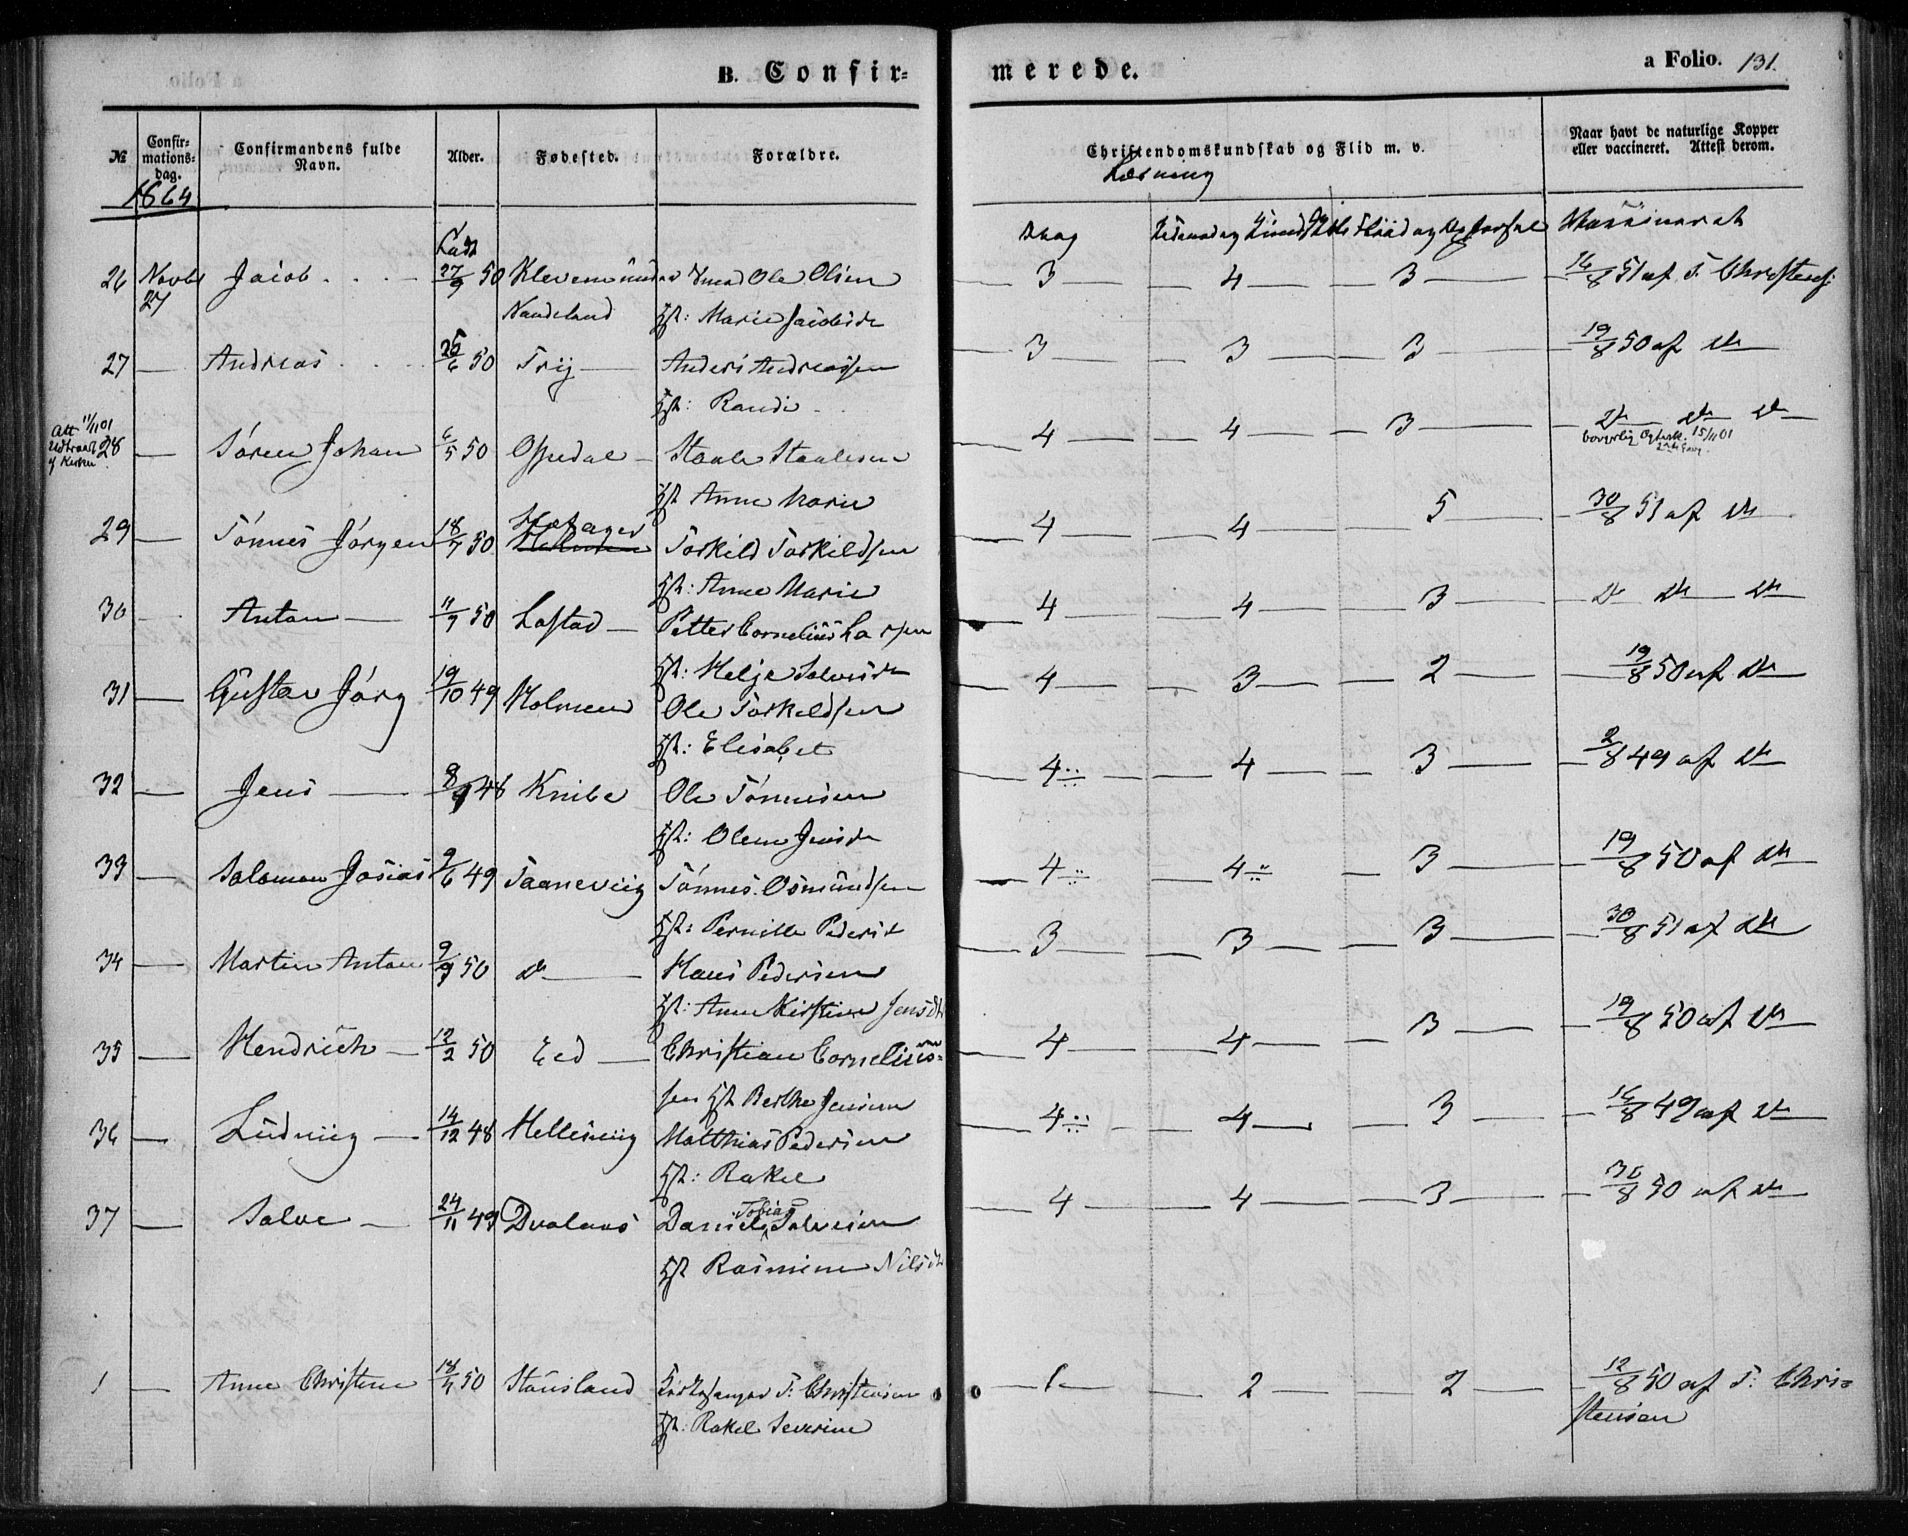 B. Confir=
merede.
a Folio. 131.
№
Confir-
mations-
dag.
Confirmandens fulde
Navn.
Alder.
Fødested.
Forældre.
Christendomskundskab og Flid m. v.
Naar havt de naturlige Kopper
eller vaccineret. Attest derom.
Læsning
1864
Født
Bog
Vaccineret
26 Novbr 27 Jacob 27/9 50 Klevene Ole Olsen
Mandeland Hst: Marie Jacobsdr
3 4 3 16/8 51 af T. Christens:
27 — Andreas 25/6 50 Trij Anders Andreassen
Hst: Randi
3 3 3 19/8 50 af do
Att 11/11 01
28 — Søren Johan 6/5 50 Opedal Staale Staalesen
Hst Anne Marie
4 4 3 do do do
15/11 01
29 — Tønnes Jørgen 18/7 50 Torkild Torkildsen
Hst: Anne Marie
4 4 5 30/8 51 af do
30 — Anton 11/7 50 Lastad Petter Cornelius Larsen
Hst: Helje Salvesdr
4 4 3 do do do
31 — Gustav Jørg 19/10 49 Holmen Ole Torkildsen
Hst: Elisabet
4 3 2 19/8 50 af do
32 — Jens 48 Knibe Ole Tønnesen
Hst: Olene Jensdr
4 4 3 2/8 49 af do
33 — Salomon Josias 9/6 49 Taanevig Tønnes Osmundsen
Hst: Pernille Pedersd
4 4 3 19/8 50 af do
34 — Martin Anton 9/9 50 do Hans Pedersen
Hst: Anne Kirstine Jensdr
3 3 3 30/8 51 af do
35 — Hendrich 12/2 50 Eed Christian Cornelius=
sen Hst Berthe Jensine
4 4 3 19/8 50 af do
36 — Ludvig 14/12 48 Hellesviig Matthias Pedersen
Hst: Rakel
4 4 3 16/8 49 af do
37 — Salve 24/11 49 Dvalaas Daniel Tobias Salvesen
Hst Rasmine Nilsdr
4 4 3 /8 50 af do
1 — Anne Christine 50 Stausland Kirkesanger T: Christensen
Hst: Rakel Severine
1 2 2 12/8 50 af T: Chri=
stensen